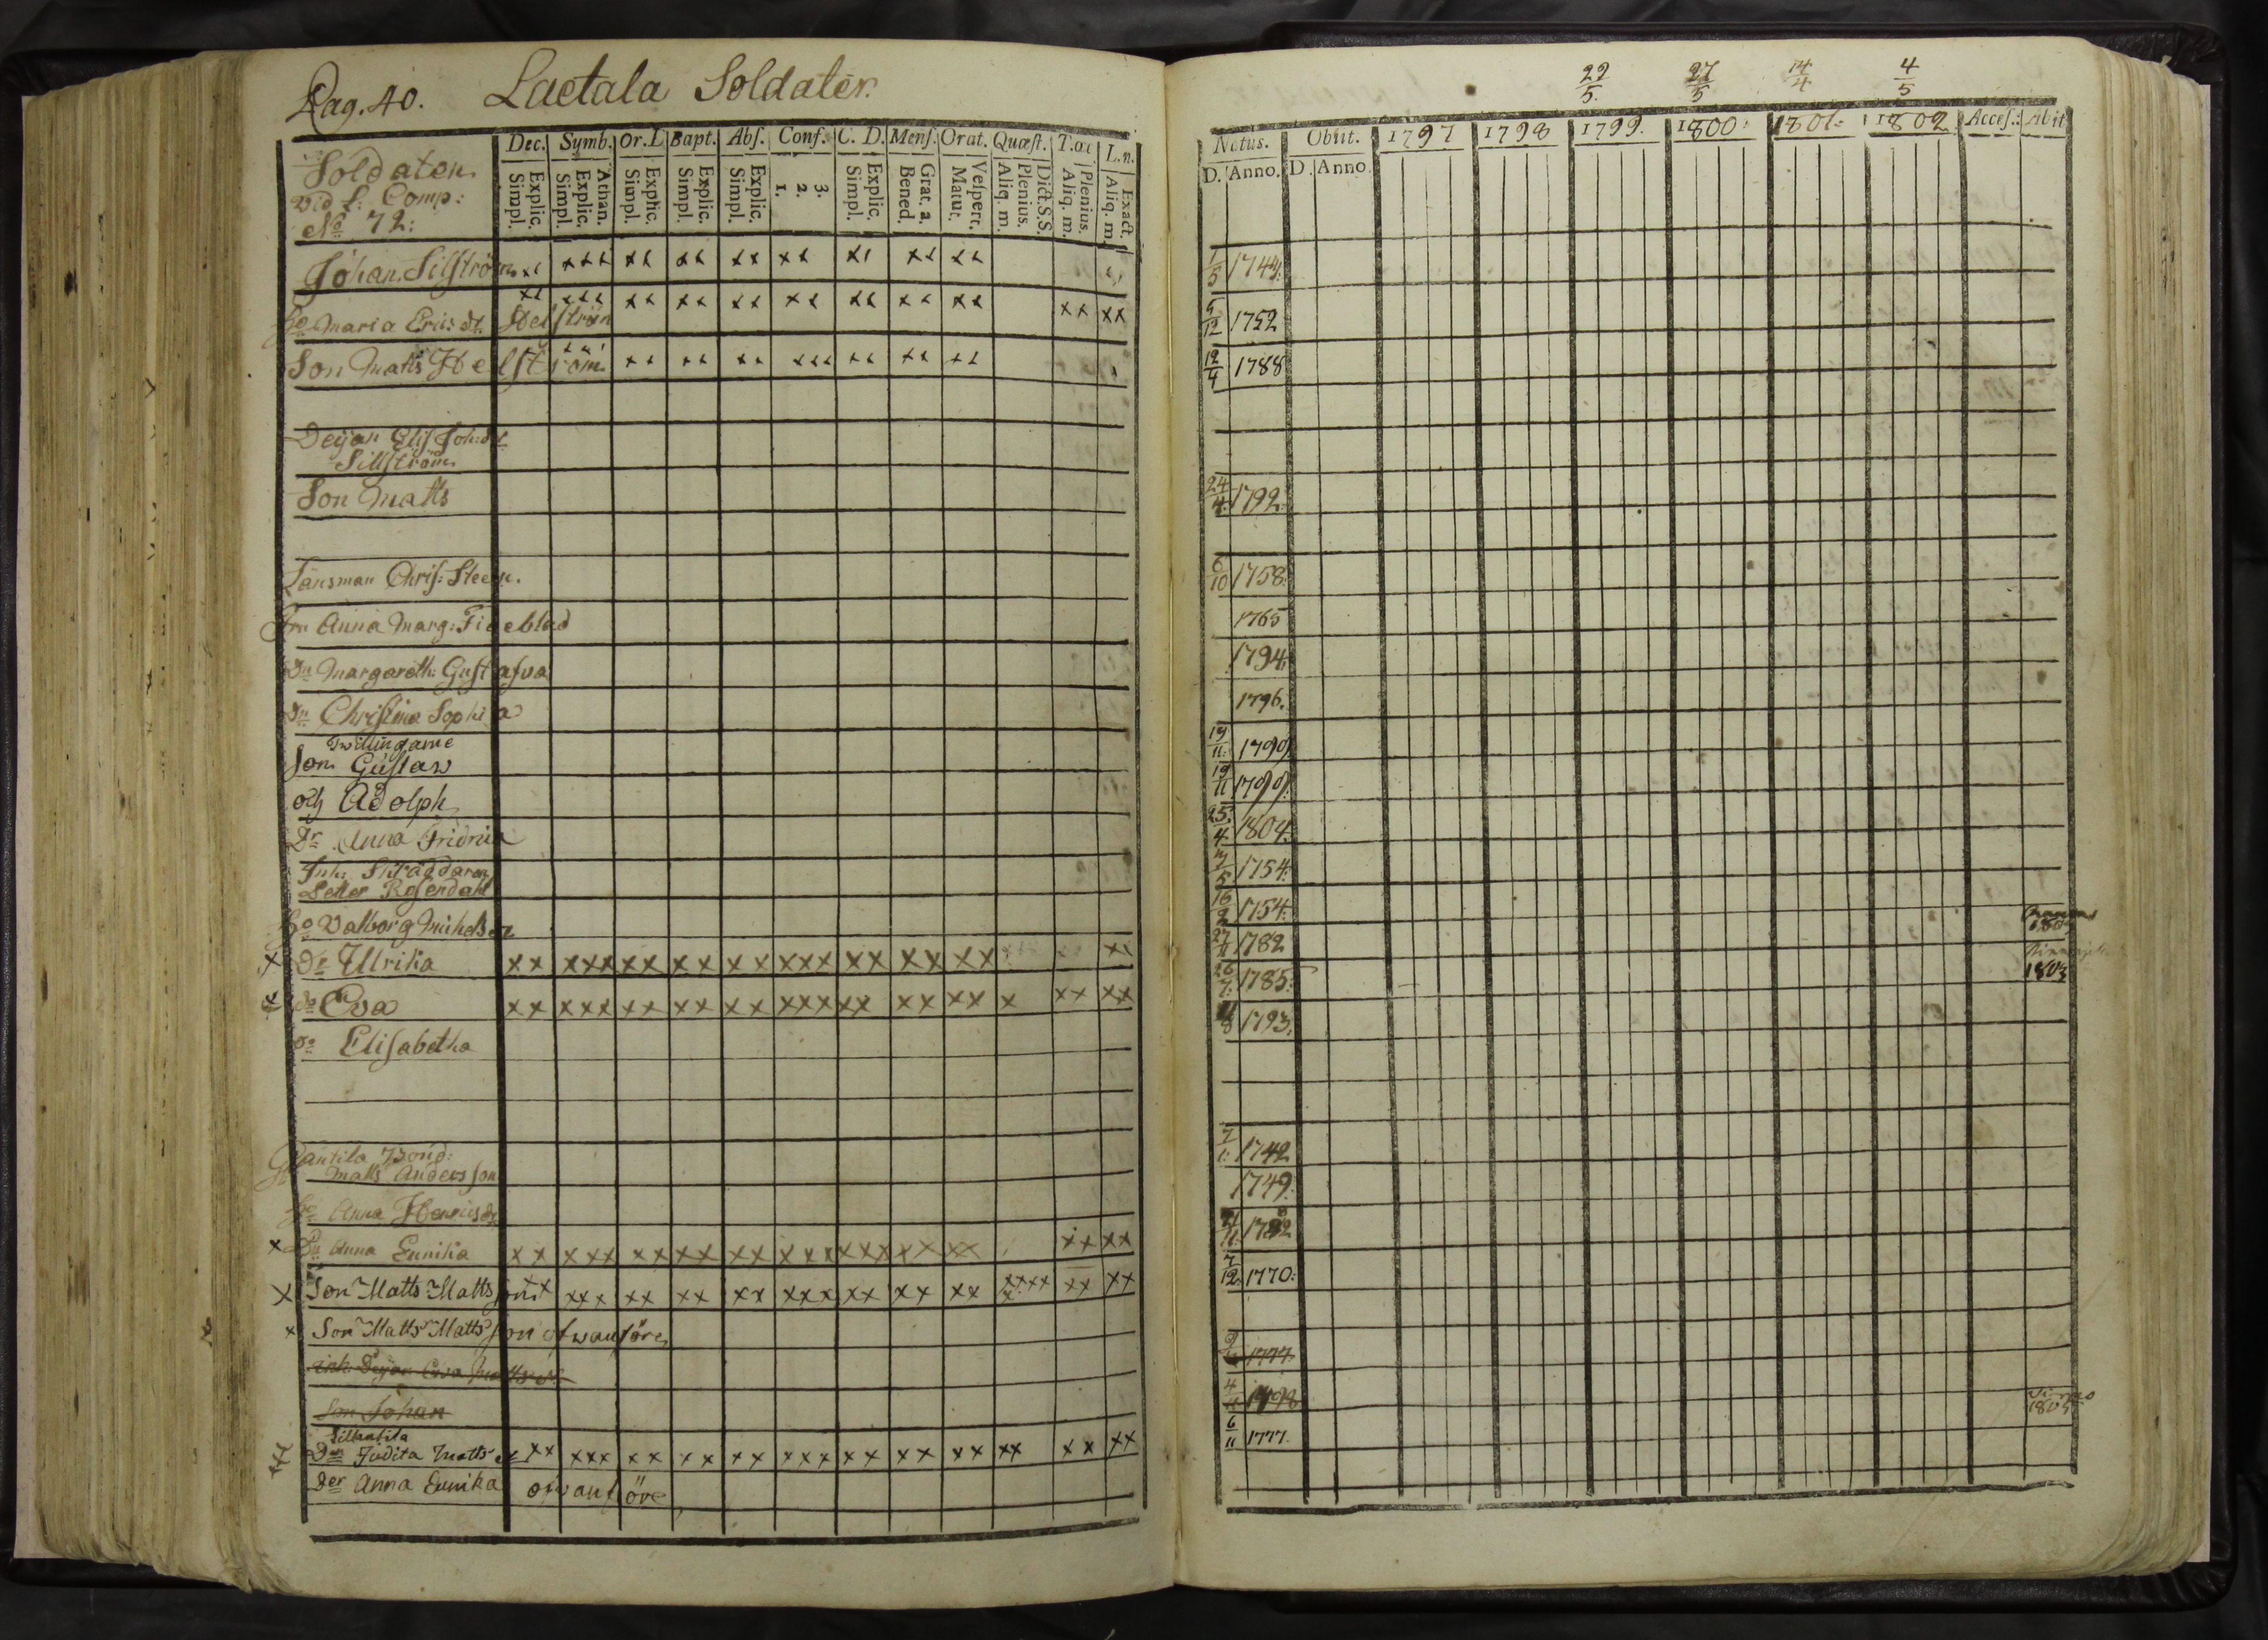 Pag. 40. Laetala Soldater.
Dec. Symb. Or. D Bapt. Abs. Conf. C. D. Mens. Orat. Quæst. T.œc L.n.
Explic. Simpl. Athan. Explic. Simpl. Explic. Simpl. Explic. Simpl. Explic. Simpl. 3. 2. 1. Explic. Simpl. Grat. a. Bened. Vesper. Matut. Dict.S.S. Plenius. Aliq. m. Plenius. Aliq. m. Exact. Aliq. m.
Soldaten
Vid L: Comp:
No 72:
Johan Silström
Ho Maria Ericsdr Helström
Son Matts Helström
Deijan Elis Joh:dr
Sillström
Son Matts
Länsman Chris: Steen.
Fru Anna Marg: Figeblad
Dr Margareth: Gustafva
Dr Christina Sophia
Twillingarne
Son Gustaw
och Adolph
Dr Anna Fridrica
Inh: Skräddaren
Petter Rosendahl
Ho Valborg Michelsdr
Dr Ulrika
Dr Eva
Dr Elisabetha
Bond:
Matts Andersson
Ho Anna Henricsdr
Dr Anna Eunika
Son Matts Mattsson
Son Matts Mattsson ofwanföre
inh: Deijan Eva Mattsdr
Son Johan
Dr Judita Mattsdr
Der Anna Eunika ofwanföre
22/5. 27/5 14/4 4/5
Natus. Obiit. 1797 1798 1799. 1800: 1801: 1802 Acces.: Abiit
D. Anno. D. Anno.
1/5 1744:
5/12 1752
12/4 1788
24/4 1792.
6/10 1758.
1765
1794.
1796.
19/11. 1799.
19/11 1799.
25/4 1804.
7/5 1754.
16/2 1754.
27/11 1782
26/7. 1785.
1803
8 1793.
7/1. 1742
1749.
11 1782
7/12. 1770.
1777.
1798
6/11 1777.